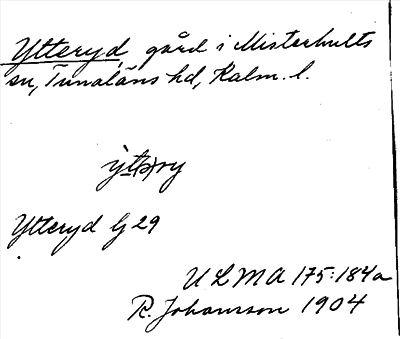 Ytteryd, gård i Misterhults
sn, Tunaläns hd, Kalm. l.
Ytteryd G 29
ULMA 175:184a
R. Johansson 1904